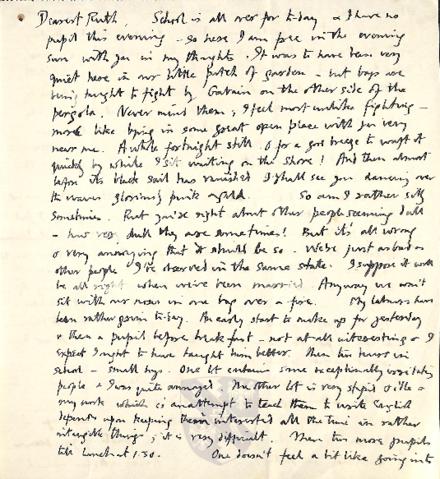 Dearest Ruth, School is all over for to-day & I have no
pupil this evening - so here I am free in the evening
sun with you in my thoughts. It was to have been very
quiet here in our little patch of garden - but boys are
being taught to fight by Gutrain on the other side of the
pergola. Never mind them; I feel most unlike fighting -
more like lying in some great open place with you very
near me. A whole fortnight still O for a good breeze to waft it
quickly by while I sit waiting on the shore! And then almost
before its black sail has vanished I shall see you dancing over
the waves gloriously pink & gold. So am I rather silly
sometimes. But you're right about other people seeming dull
- how very dull they are sometimes! But it's all wrong
& very annoying that it should be so. We're just as bad as
other people I've observed in the same state. I suppose it will
be all right when we've been married. Anyway we won't
sit with our noses in one bag over a fire. My labours have
been rather going to-day. An early start to make up for yesterday
& then a pupil before breakfast - not at all interesting & I
expect I ought to have taught him better. Then two hours in
school - small boys. One lot contains some exceptionally irritating
people & I was quite annoyed. Another lot is very stupid & idle &
my work which is an attempt to teach them to write English
depends upon keeping them interested all the time in rather
intangible things; it is very difficult. Then two more pupils
till lunch at 1.30. One doesn't feel a bit like going into